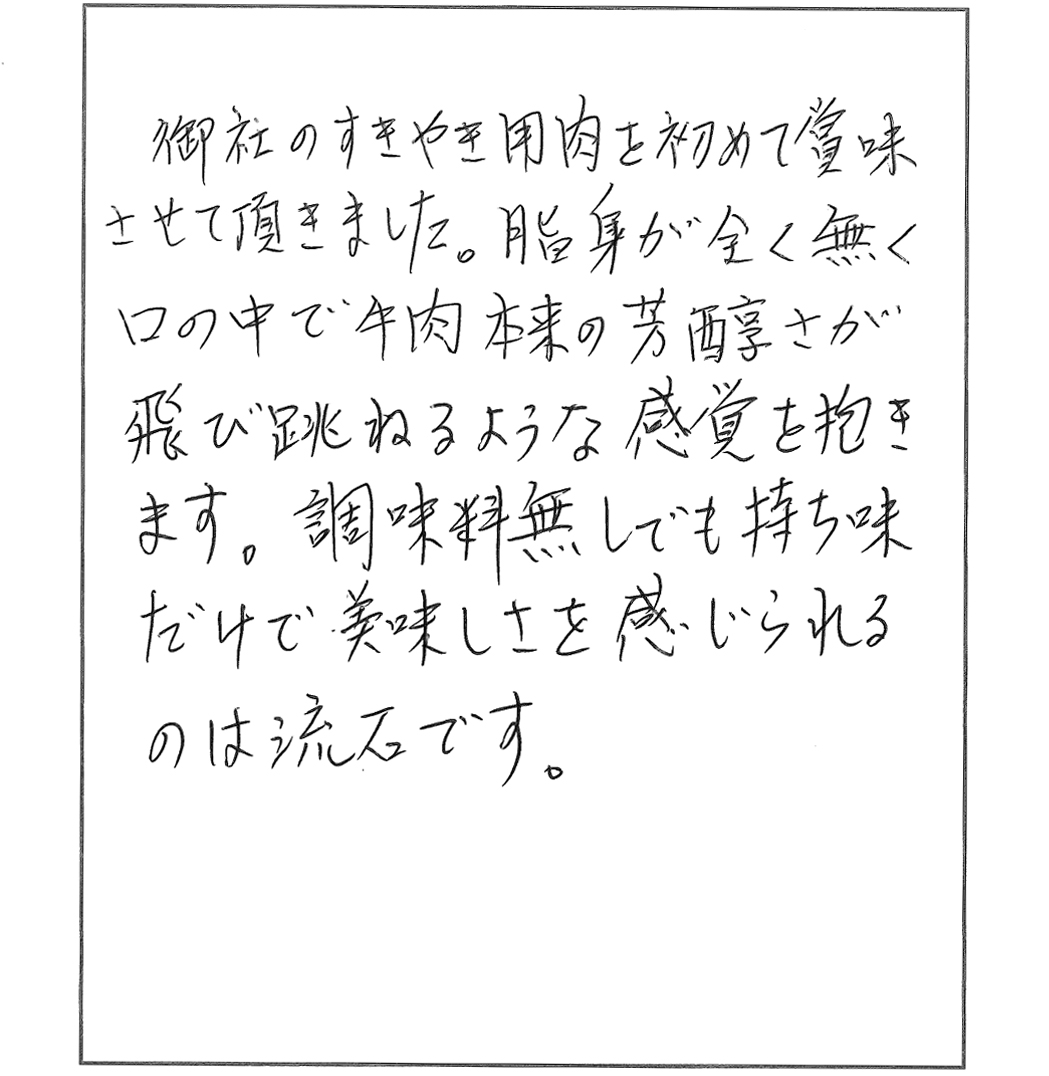 御社のすきやき用肉を初めて賞味
させて頂きました。脂身が全く無く
口の中で牛肉本来の芳醇さが
飛び跳ねるような感覚を抱き
ます。調味料無しでも持ち味
だけで美味しさを感じられる
のは流石です。